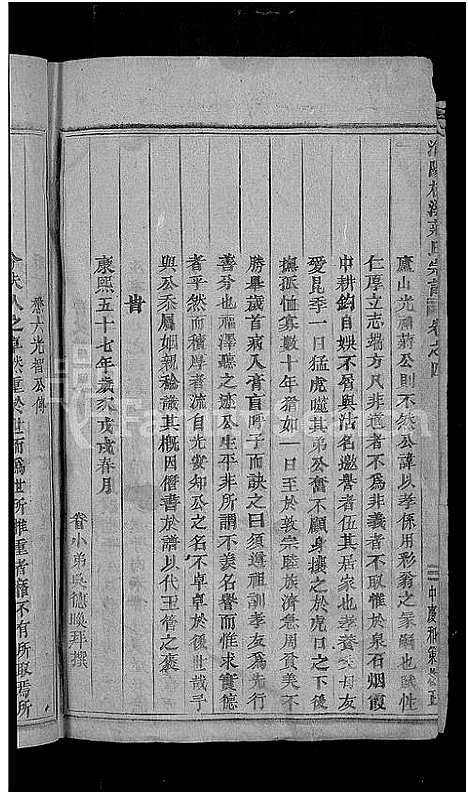 廬山光福蔣公則不然公諱以孝係用彩翁之篆嗣也賦性
仁厚立志端方凡非道者不為非義者不取惟於泉石烟霞
中耕釣自娛不屑與沽名邀譽者伍其居家也孝養失母友
愛昆季一日猛虎噬其弟公奮不顧身攘之於虎口之下後
撫孤恤寡數十年猶如一日至於敦宗睦族濟急周貧美不
勝舉歲首病入膏肓呼子而訣之曰須遵祖訓孝友為先行
善分也福澤聽之迹公生平非所謂不羨名譽而惟求實德
者乎然而積厚者流自光安知公之名不卓卓於後世哉予
與公忝屬姻親稔識其概因僭書於譜以代王管之褒
旹
康熙五十七年歲次戊戌春月
眷小弟吳德煥拜撰
懋六光智公傳
今夫人之卓然重於世而為世所推重者權不有所取焉所
宗譜 卷之四